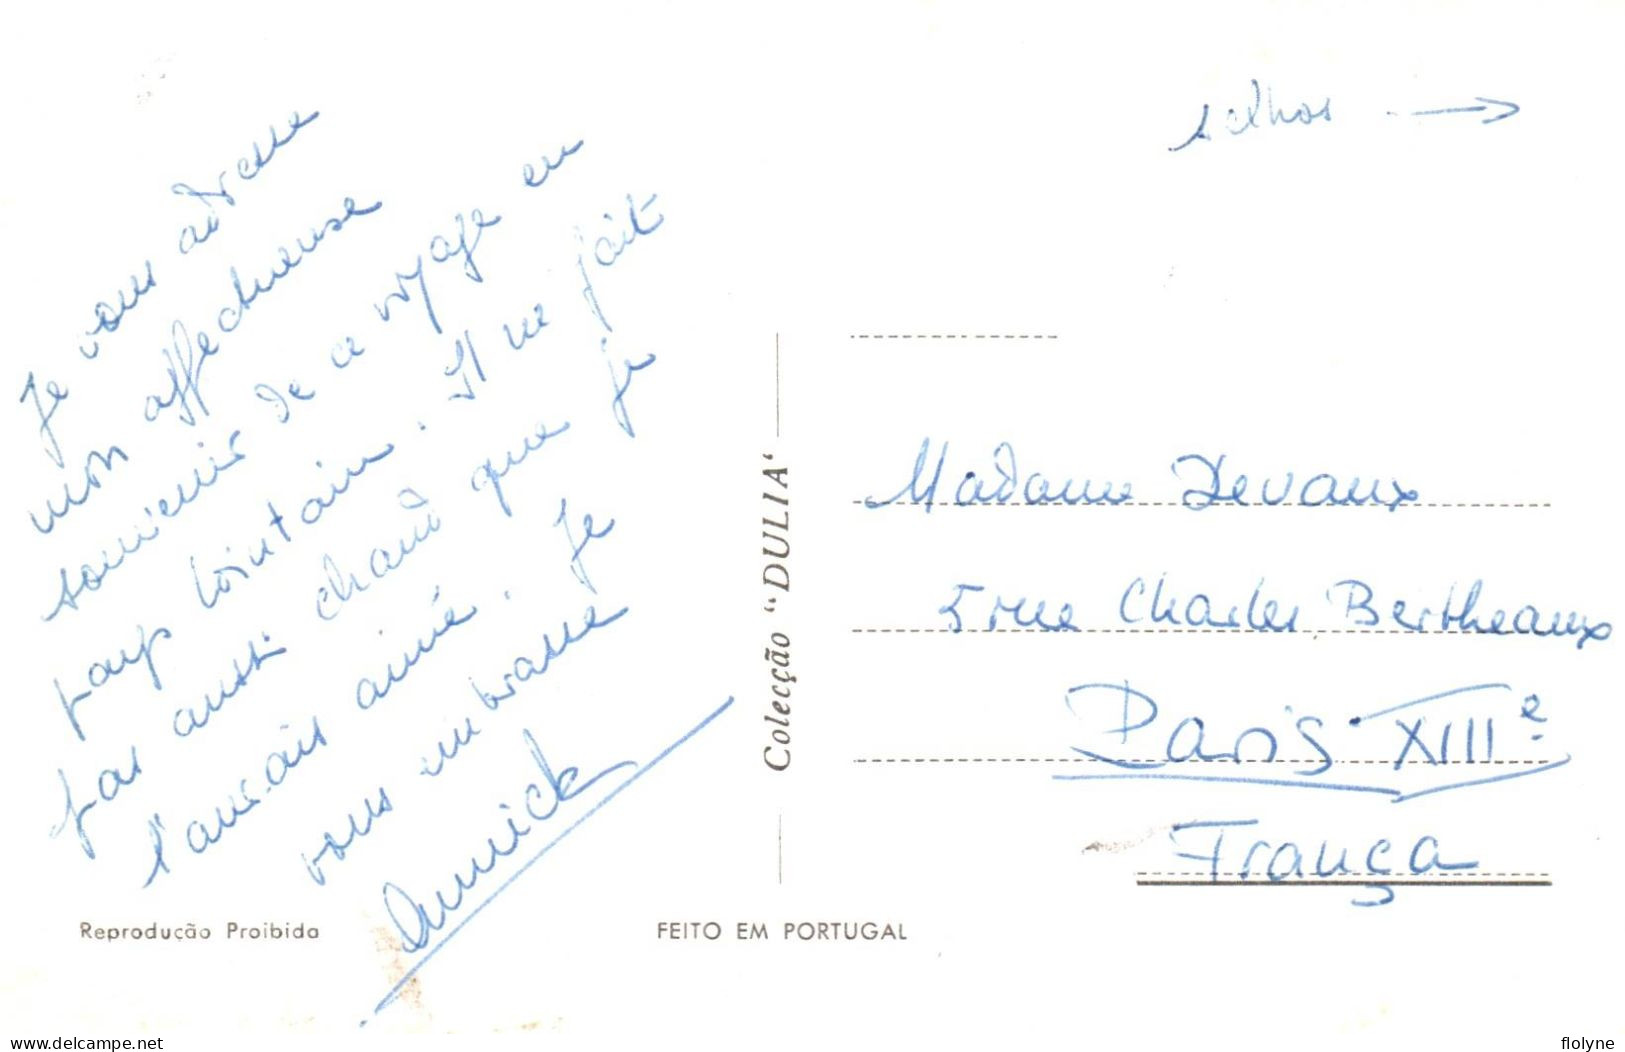 Je vous adresse
mon affectueuse
souvenir de ce voyage en
pays lointain. Il ne fait
pas aussi chaud que je
l'aurais aimé. Je
vous embrasse
Annick
selhos →
Colecção "DULIA"
Madame Devaux
5 rue Charles Bertheaux
Paris XIIIe
França
Reprodução Proibida
FEITO EM PORTUGAL
www.delcampe.net
flolyne